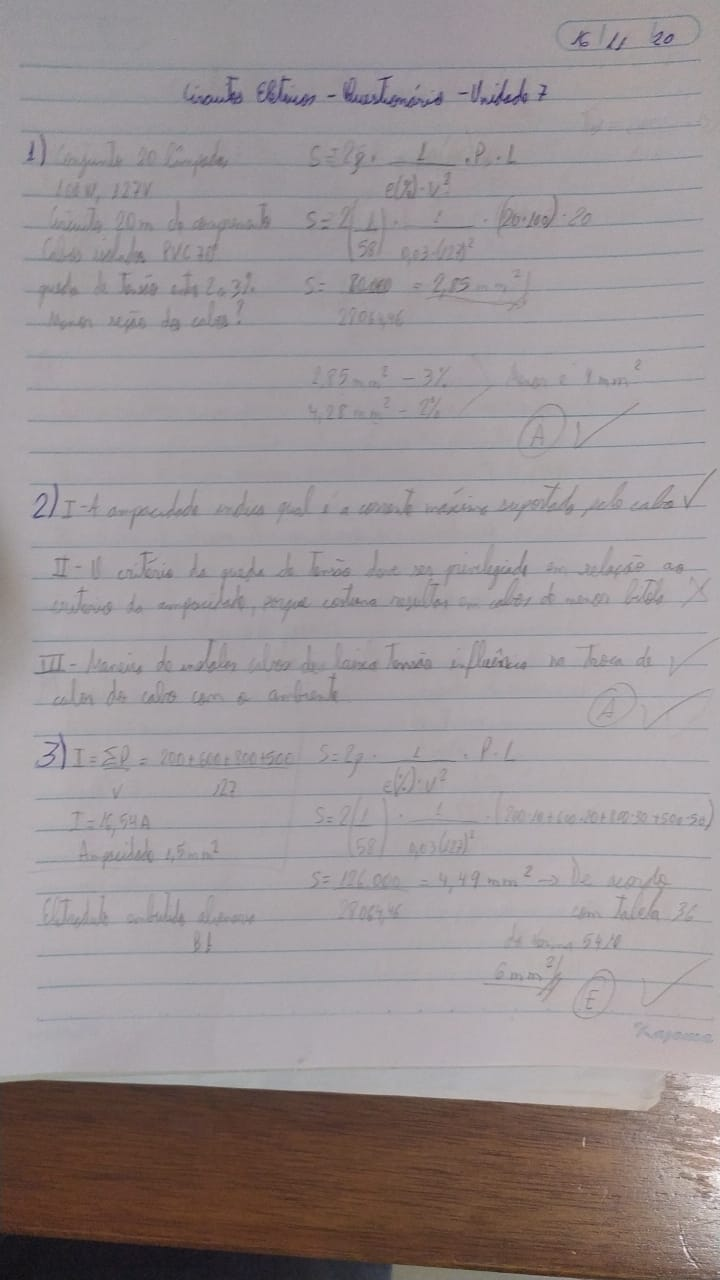 16 / 11 / 20
Circuitos Elétricos - Questionário - Unidade 7
1) Conjunto 20 lâmpadas
100W, 127V
Circuito 20m de comprimento
Cabos isolados PVC 70°
queda de tensão entre 2 a 3%
Menor seção dos cabos?
S = 2ρ · 1 / e(%)·V² · P · L
S = 2(1/58) · 1 / 0,03·(127)² · (20·100)·20
S = 80.000 / 28064,46 = 2,85 mm²
2,85 mm² - 3%
4,28 mm² - 2%
é 4 mm²
A ✓
2) I - A ampacidade indica qual é a corrente máxima suportada pelo cabo ✓
II - O critério da queda de tensão deve ser privilegiado em relação ao
critério da ampacidade, porque costuma resultar em cabos de menor bitola X
III - Maneira de instalar cabos de baixa tensão influência na troca de ✓
calor do cabo com o ambiente
A ✓
3) I = ΣP / V = 200+600+800+500 / 127
I = 16,54A
Ampacidade 1,5mm²
Eletroduto embutido alvenaria
B1
S = 2ρ · 1 / e(%)·V² · P · L
S = 2(1/58) · 1 / 0,03(127)² · (200·10+600·20+800·30+500·50)
S = 126.000 / 28064,46 = 4,49 mm² → De acordo
com Tabela 36
da norma 5410
6 mm²
E ✓
Kajoma